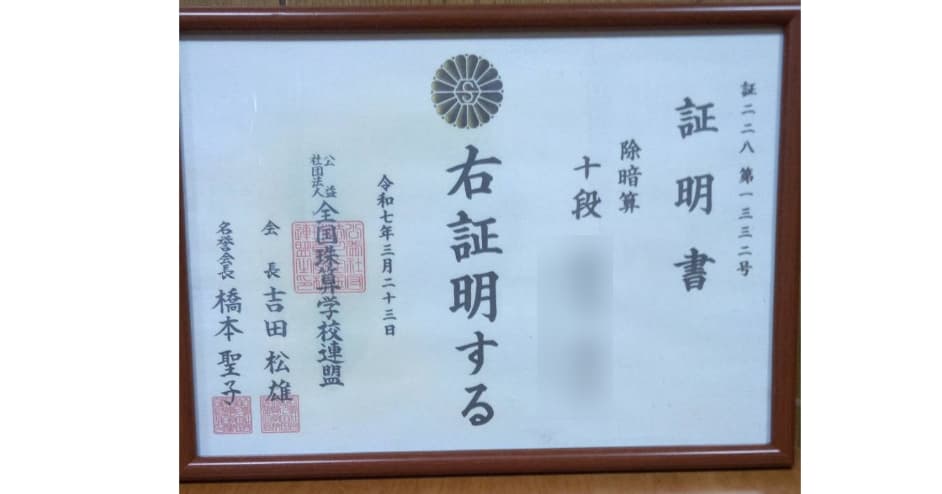 証二二八 第一三三二号
証明書
除暗算
十段
右証明する
令和七年三月二十三日
公益社団法人 全国珠算学校連盟
会長 吉田松雄
名誉会長 橋本聖子